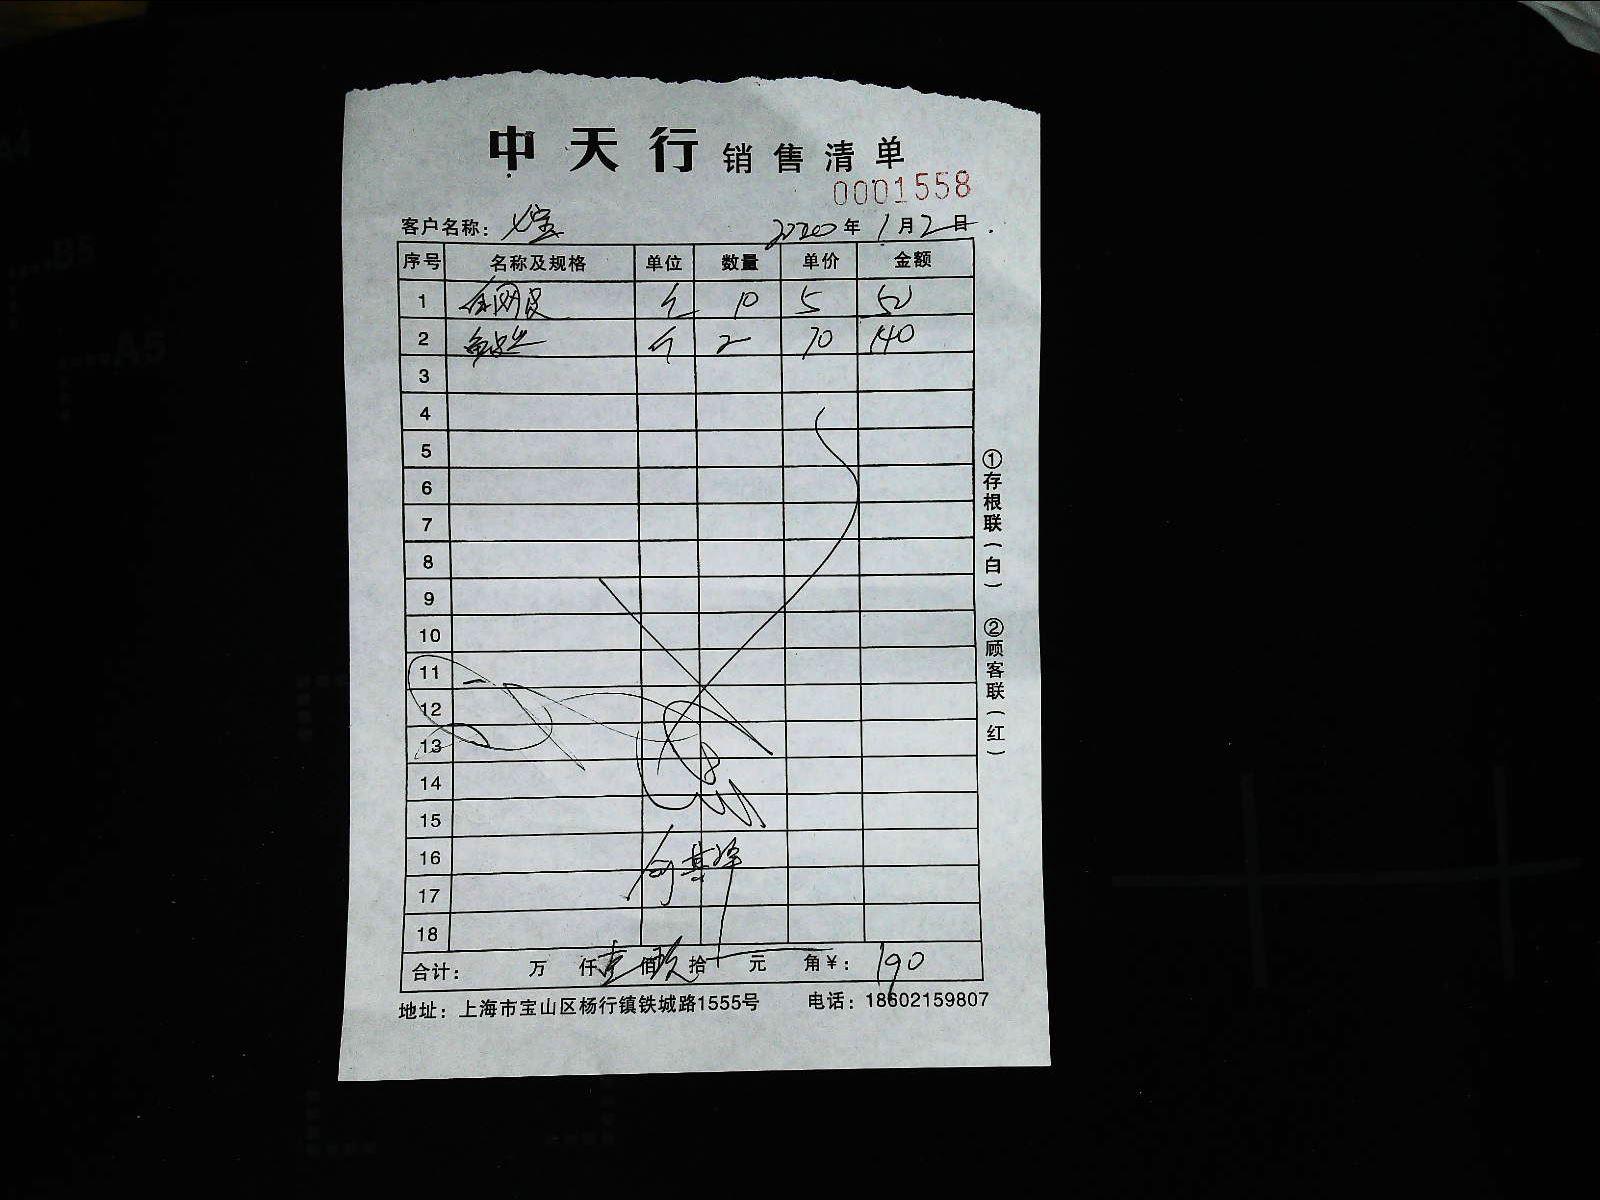 中天行 销售清单
0001558
客户名称：七宝 2020年1月2日
序号 名称及规格 单位 数量 单价 金额
1 10 5 50
2 2 70 140
3
4
5
6
7
8
9
10
11
12
13
14
15
16
17
18
合计： 万 仟壹佰玖拾 元 角¥：190
地址：上海市宝山区杨行镇铁城路1555号 电话：18602159807
①存根联（白）
②顾客联（红）